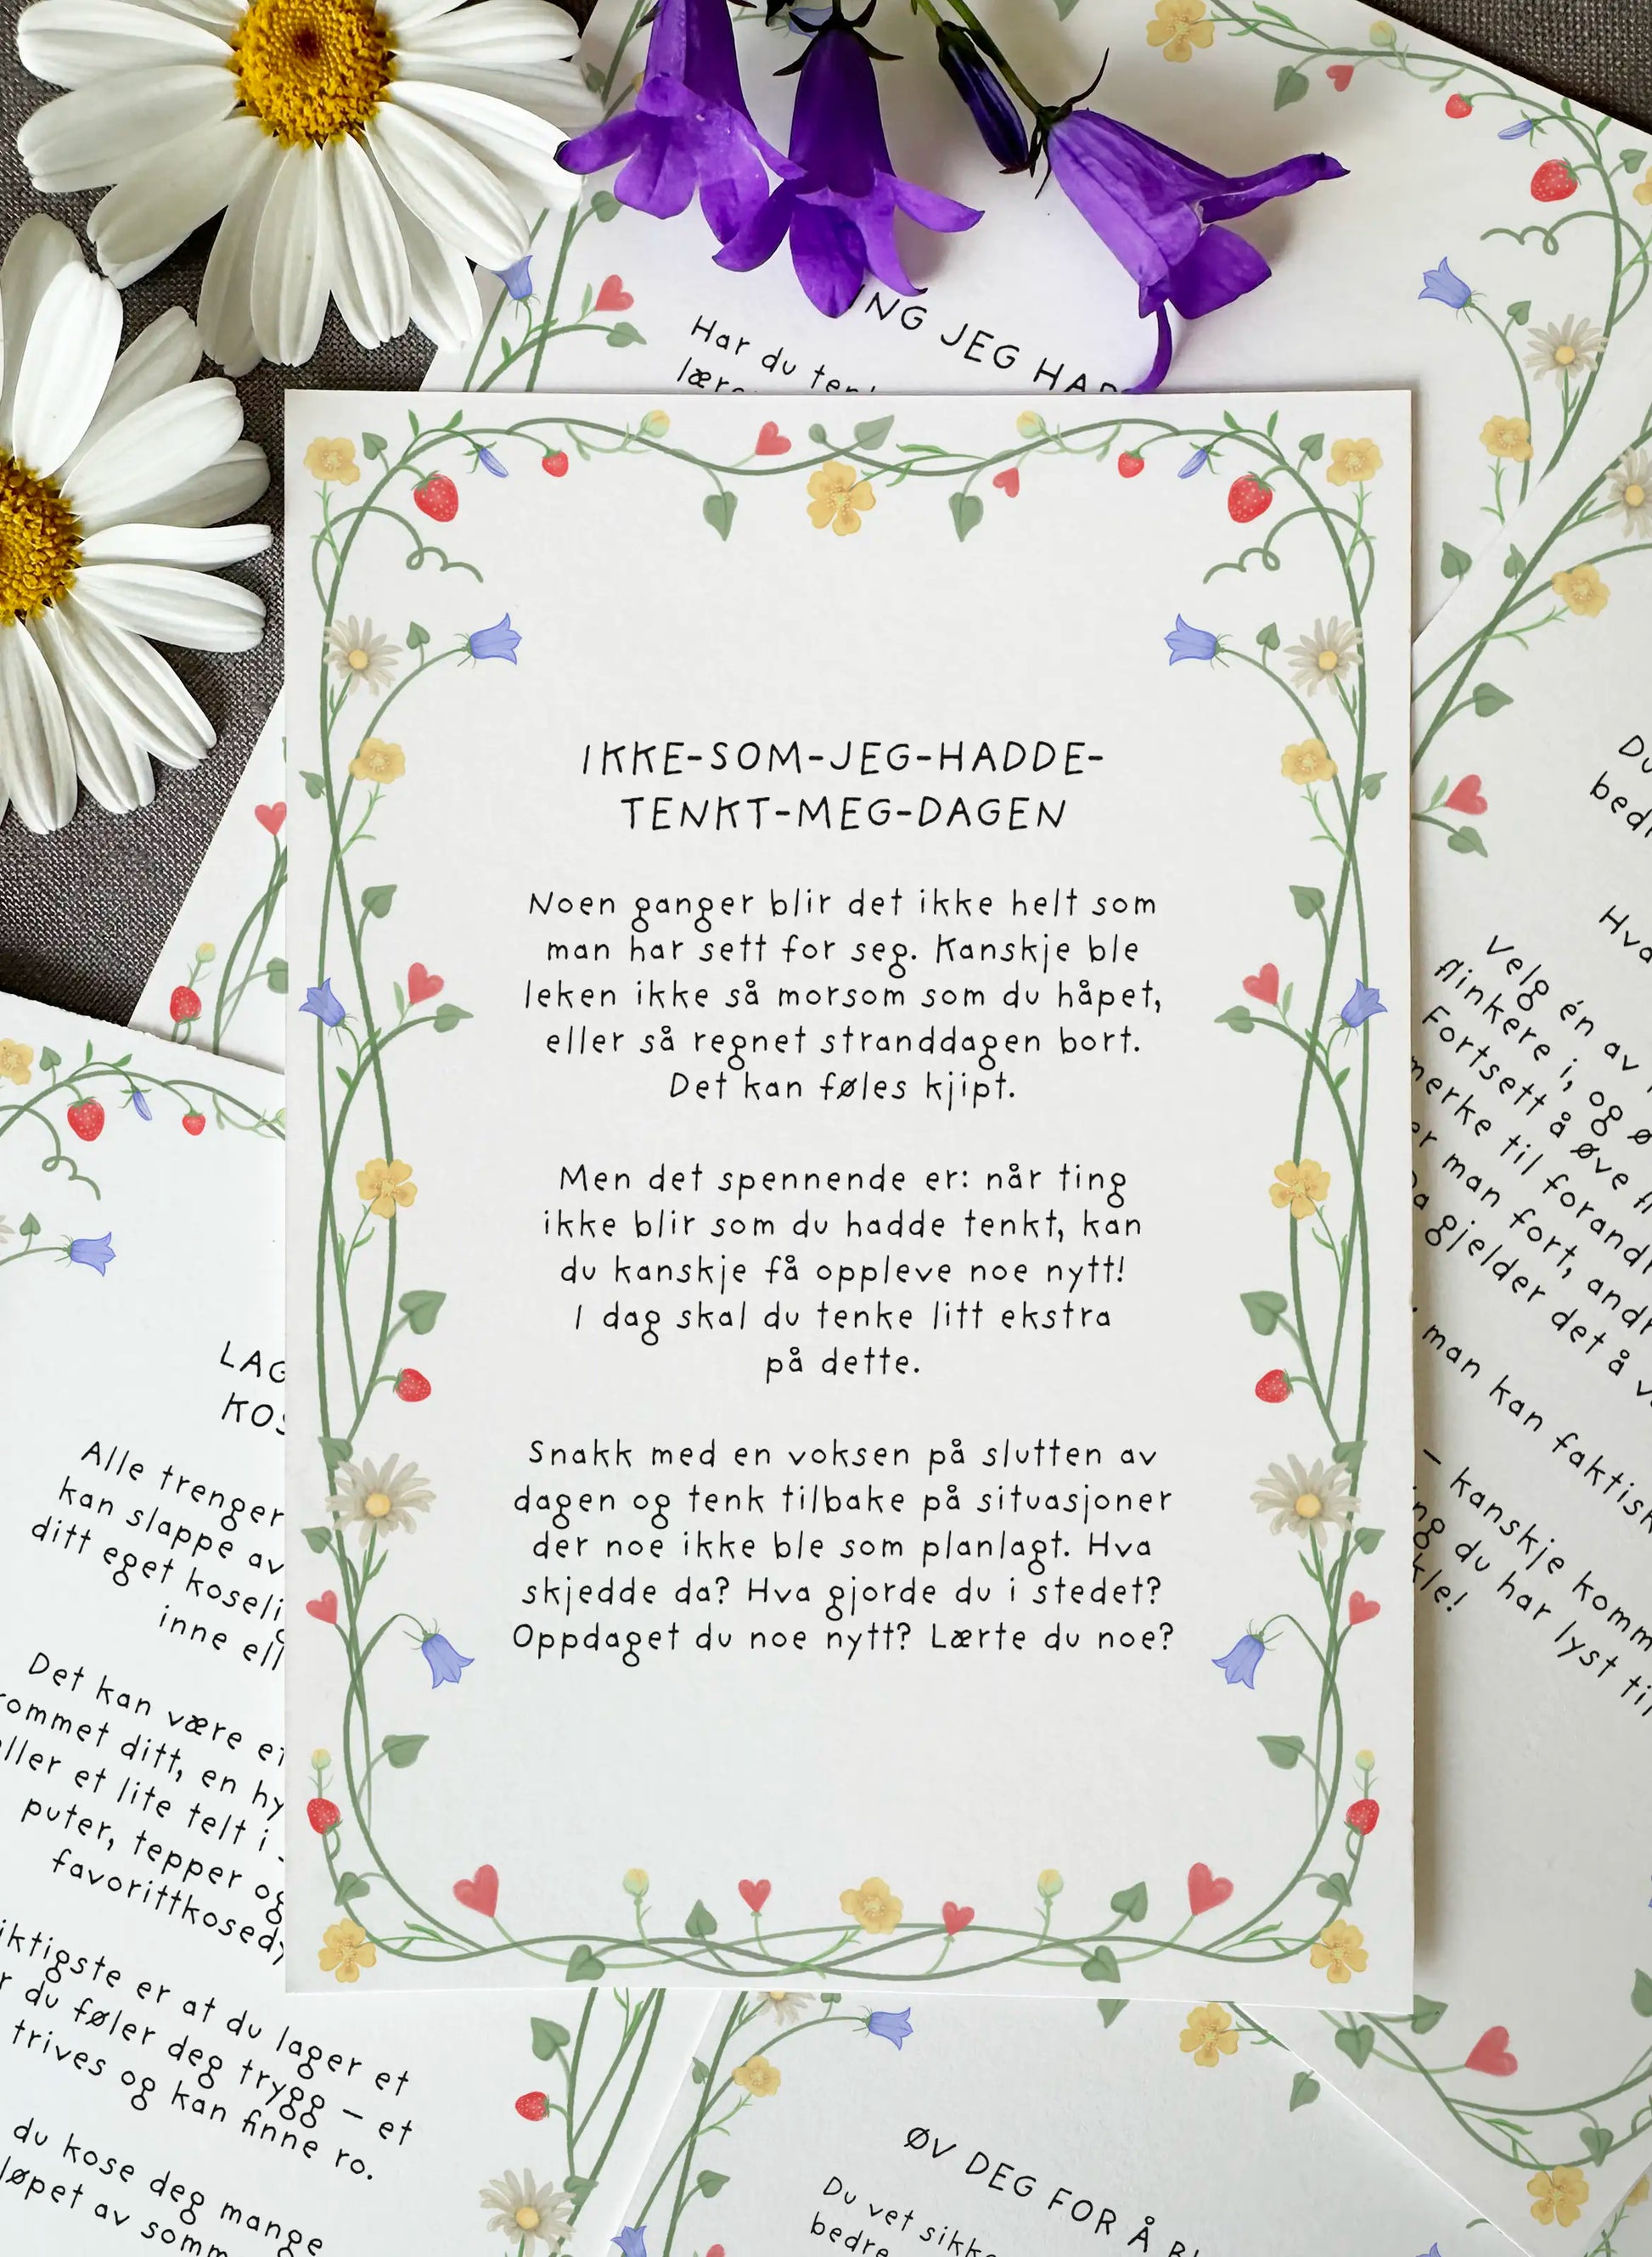 NG JEG HAR
Har du
IKKE-SOM-JEG-HADDE-
TENKT-MEG-DAGEN
Noen ganger blir det ikke helt som
man har sett for seg. Kanskje ble
leken ikke så morsom som du håpet,
eller så regnet stranddagen bort.
Det kan føles kjipt.
Men det spennende er: når ting
ikke blir som du hadde tenkt, kan
du kanskje få oppleve noe nytt!
I dag skal du tenke litt ekstra
på dette.
Snakk med en voksen på slutten av
dagen og tenk tilbake på situasjoner
der noe ikke ble som planlagt. Hva
skjedde da? Hva gjorde du i stedet?
Oppdaget du noe nytt? Lærte du noe?
LAG
KOS
Alle trenger
kan slappe av
ditt eget koseli
inne ell
Det kan være et
rommet ditt, en hy
eller et lite telt i
puter, tepper og
favorittkosedy
iktigste er at du lager et
r du føler deg trygg – et
trives og kan finne ro.
du kose deg mange
løpet av somm
ØV DEG FOR Å BL
Du vet sikk
bedre
Du
bedr
Hva
Velg én av
flinkere i, og ø
Fortsett å øve fl
merke til forandr
er man fort, andr
gjelder det å v
man kan faktisk
– kanskje komm
ng du har lyst til
kle!